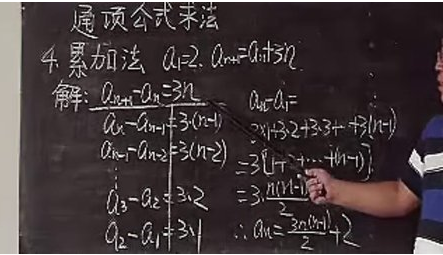 通项公式求法
4. 累加法 a₁=2. aₙ₊₁=aₙ+3n
解: aₙ₊₁-aₙ=3n
aₙ-aₙ₋₁=3·(n-1)
aₙ₋₁-aₙ₋₂=3(n-2)
⋮
a₃-a₂=3·2
a₂-a₁=3·1
aₙ-a₁=
3×1+3·2+3·3+…+3(n-1)
=3[1+2+…+(n-1)]
=3·n(n-1)/2
∴ aₙ=3n(n-1)/2+2